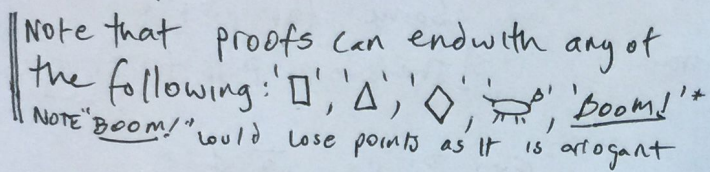 Note that proofs can end with any of
the following: '□', '△', '◇', ' ', 'Boom!'*
NOTE "Boom!" could lose points as it is arrogant